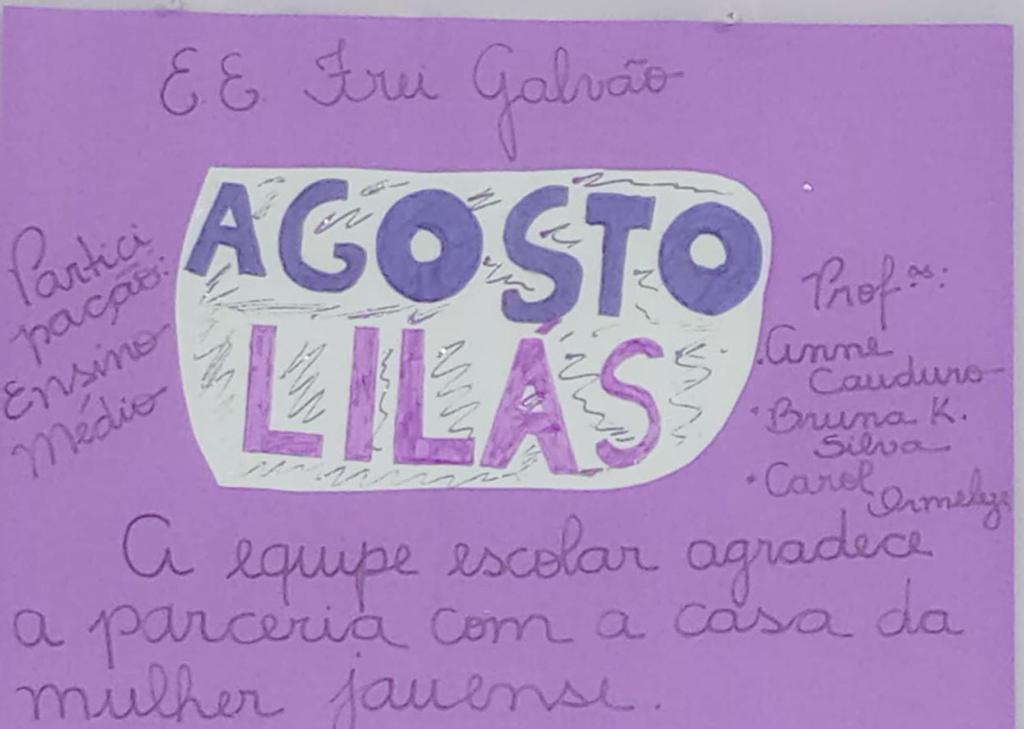 E.E. Frei Galvão
AGOSTO
LILÁS
Partici
pação:
Ensino
Médio
Prof.as:
. Anne
Cauduro
• Bruna K.
Silva
• Carol
A equipe escolar agradece
a parceria com a casa da
mulher jauense.